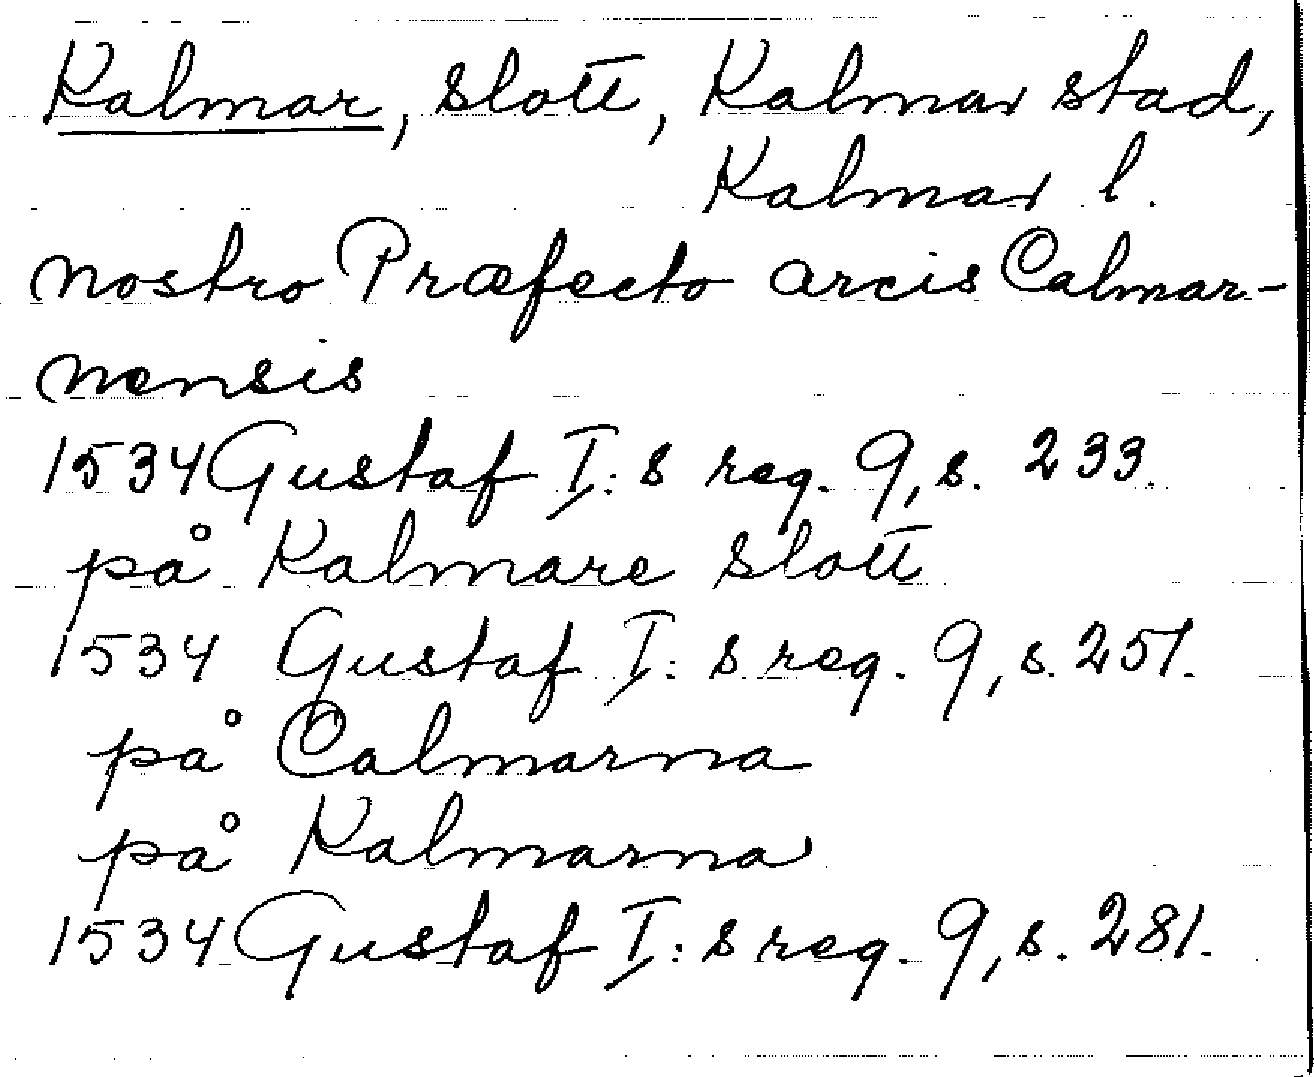 Kalmar, slott, Kalmar stad,
Kalmar l.
nostro Præfecto arcis Calmar-
nensis
1534 Gustaf I:s reg. 9, s. 233.
på Kalmare slott
1534 Gustaf I:s reg. 9, s. 251.
på Calmarna
på Kalmarna
1534 Gustaf I:s reg. 9, s. 281.